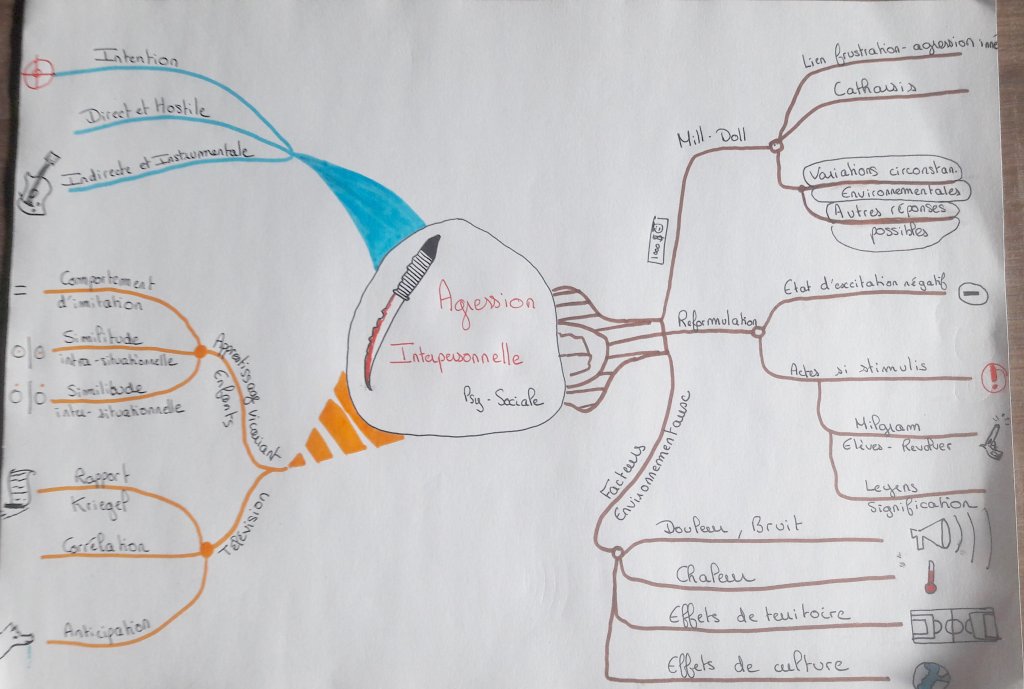 Agression
Interpersonnelle
Psy-Sociale
Intention
Direct et Hostile
Indirecte et Instrumentale
Apprentissage vicariant
Enfants
Comportement
d'imitation
Similitude
intra-situationnelle
Similitude
inter-situationnelle
Télévision
Rapport
Kriegel
Corrélation
Anticipation
Mill-Doll
Lien frustration-agression inné
Catharsis
Variations circonstan.
Environnementales
Autres réponses
possibles
Reformulation
Etat d'excitation négatif
Actes si stimulis
Milgram
Elèves - Revolver
Leyens
Signification
Facteurs
Environnementaux
Douleur, Bruit
Chaleur
Effets de territoire
Effets de culture